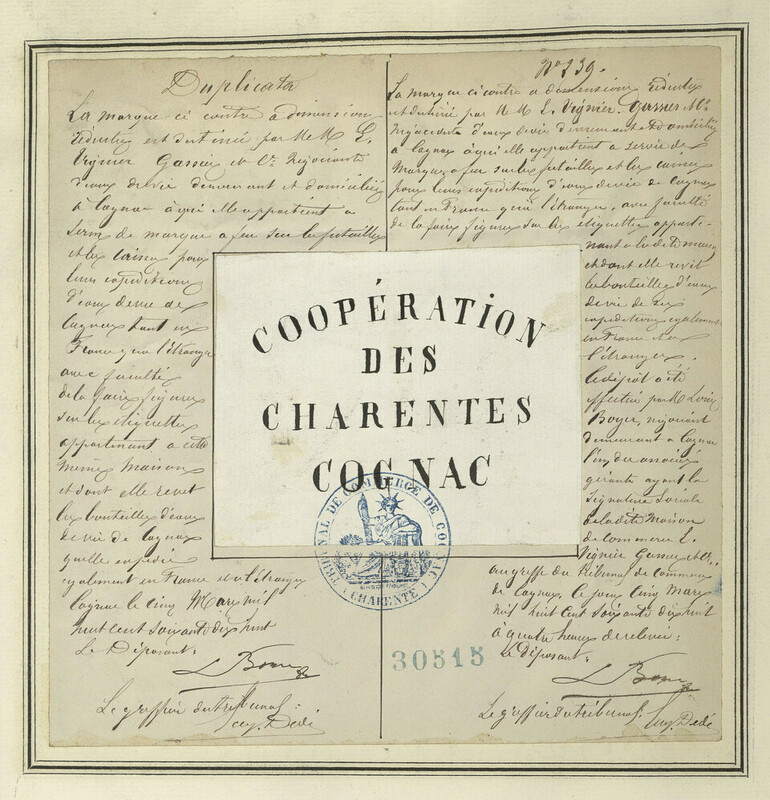 Duplicata
La marque ci contre a dimension
réduite est destinée par MM. E.
Vignier Gasnier et Cie Négociants
d'eaux de vie demeurant et domiciliés
à Cognac à qui elle appartient a
servir de marque a feu sur les futailles
et les caisses pour
leurs expéditions
d'eaux de vie de
Cognac tant en
France qu'a l'étranger
avec faculté
de la faire figurer
sur les étiquettes
appartenant a cette
même Maison
et dont elle revet
les bouteilles d'eaux
de vie de Cognac
qu'elle expédie
également en France et a l'étranger
Cognac le cinq Mars mil
huit cent soixante dix huit
Le Déposant:
L Boyer
Le greffier du tribunal:
Dédé
COOPÉRATION
DES
CHARENTES
COGNAC
TRIBUNAL DE COMMERCE DE COGNAC
(CHARENTE)
30515
No 239.
La marque ci contre a dimensions réduites
est destinée par MM. E. Vignier Gasnier & Cie
Négociants d'eaux de vie demeurant et domiciliés
a Cognac à qui elle appartient a servir de
Marque a feu sur les futailles et les caisses
pour leurs expéditions d'eaux de vie de Cognac
tant en France qu'a l'étranger, avec faculté
de la faire figurer sur les étiquettes apparte-
nant a la dite maison
et dont elle revet
les bouteilles d'eaux
de vie de ses
expéditions également
en France et a
l'étranger.
Le dépôt a été
effectué par M. Louis
Boyer, négociant
demeurant a Cognac
l'un des associés
gérants ayant la
signature sociale
de la dite Maison
de commerce E.
Vignier Gasnier et Cie,
au greffe du Tribunal de Commerce
de Cognac, le jour cinq Mars
mil huit cent soixante dix huit
à quatre heures de relevée:
Le Déposant:
L Boyer
Le greffier du tribunal,
Dédé